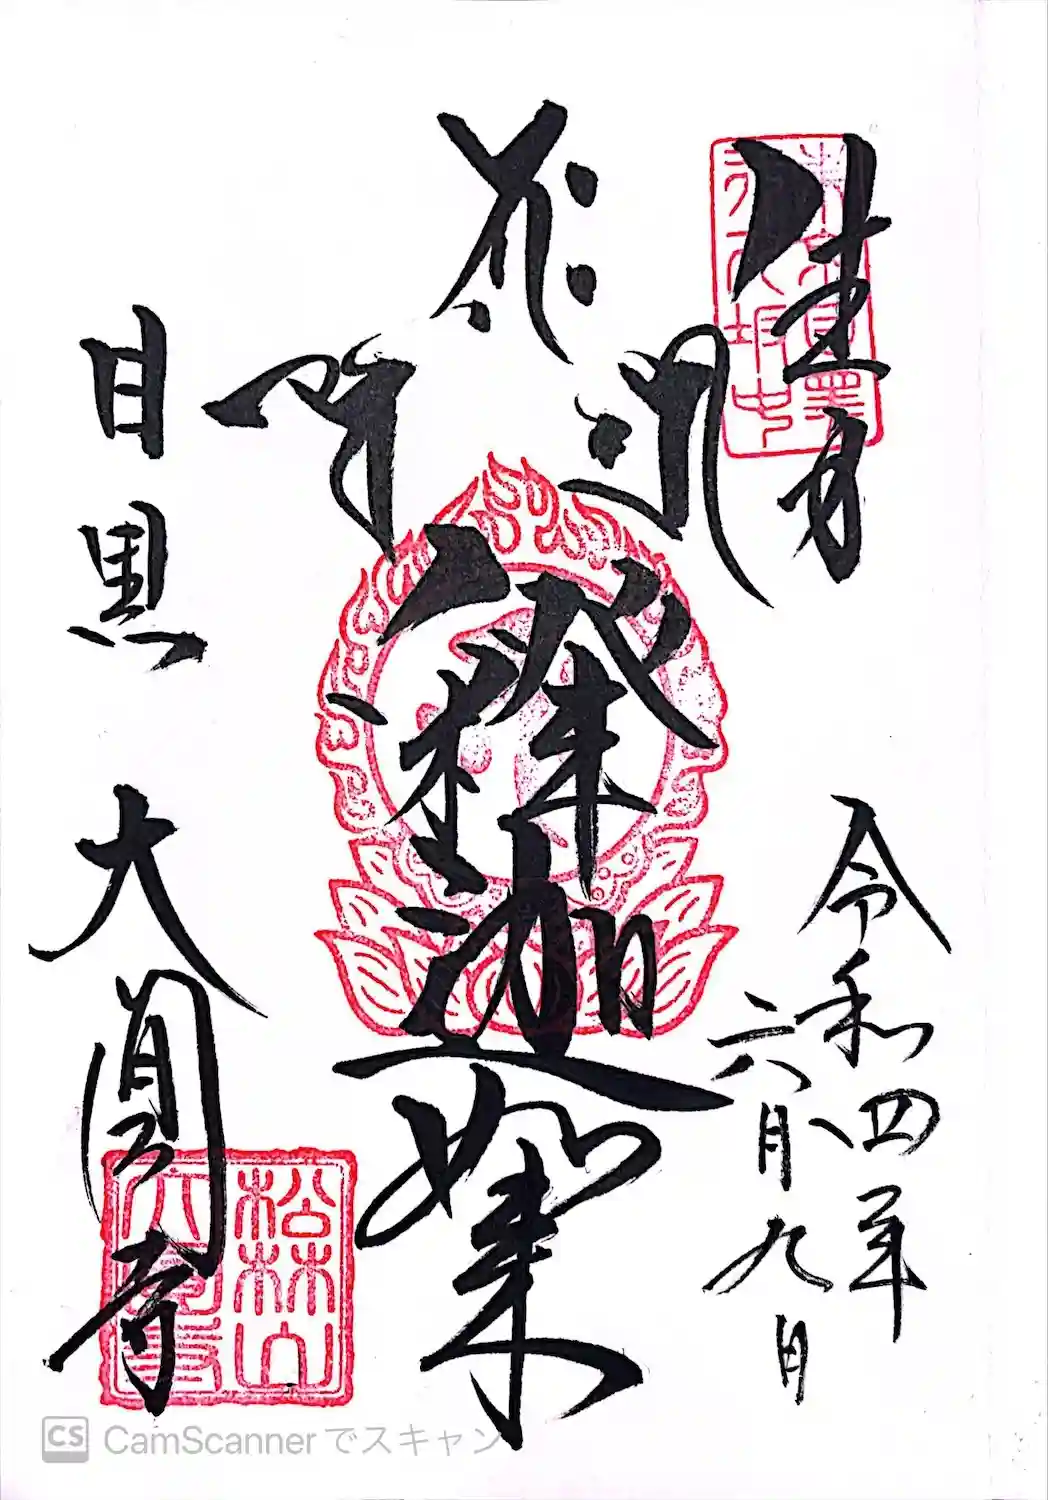 生身
令和四年
六月九日
釋迦如来
目黒 大圓寺
松林山
大圓寺
CS CamScannerでスキャン